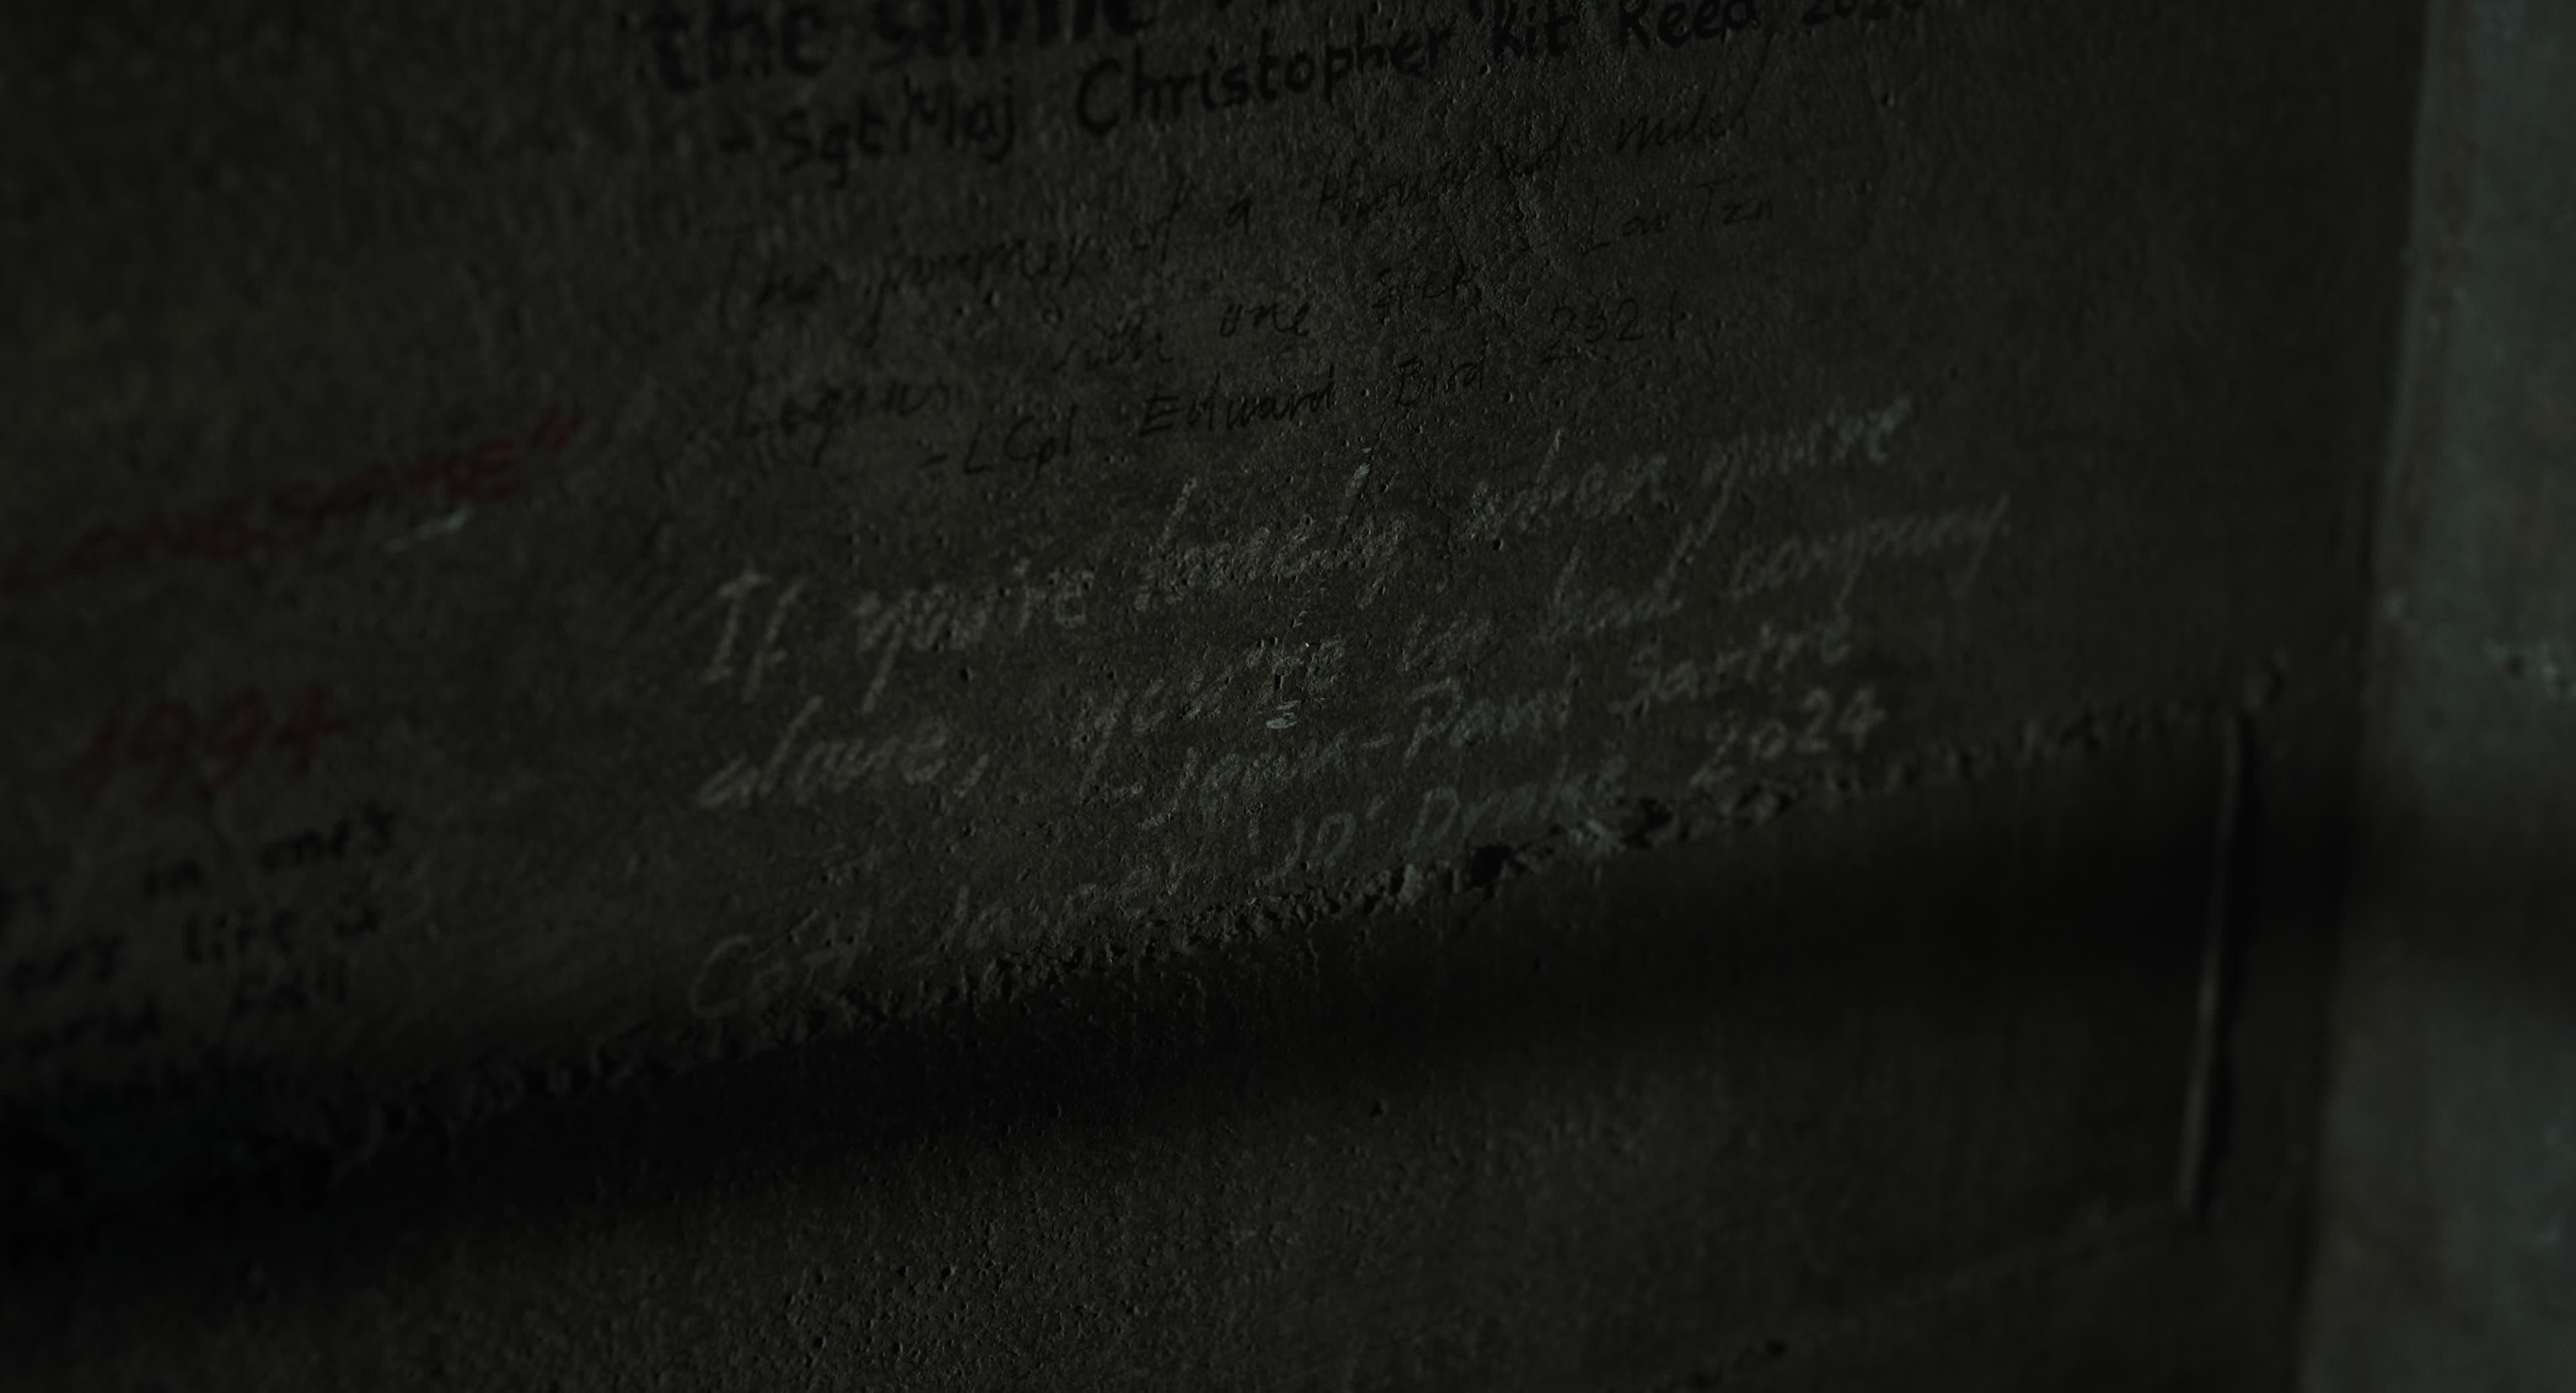 the same
- SgtMaj Christopher 'Kit' Reed, 2020
The journey of a thousand miles
begins with one step - Lao Tzu
- LCpl Edward Bird 2021
If you're lonely when you're
alone, you're in bad company
- Jean-Paul Sartre
Cpt James 'JD' Drake 2024
LONESOME"
1994
in one's
life is
fall